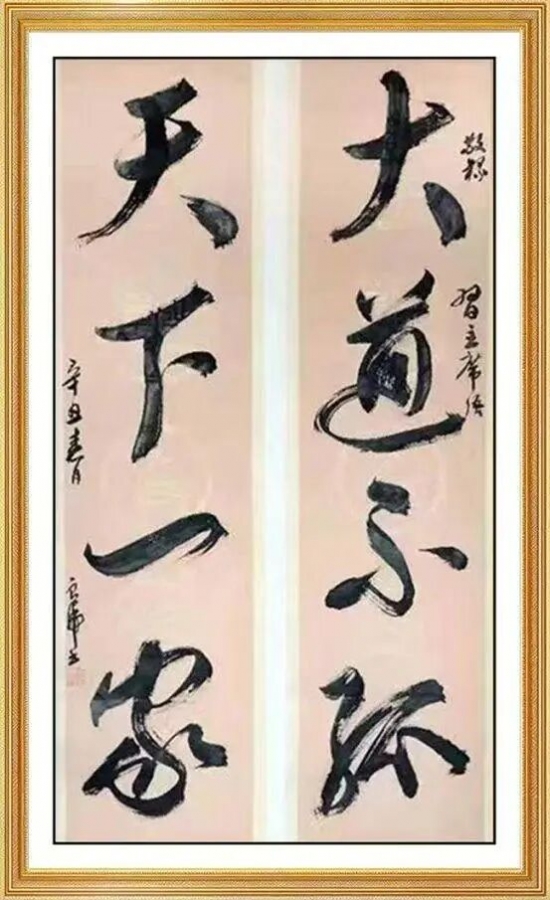 敬
習主席语
大道不孤
天下一家
辛丑春月